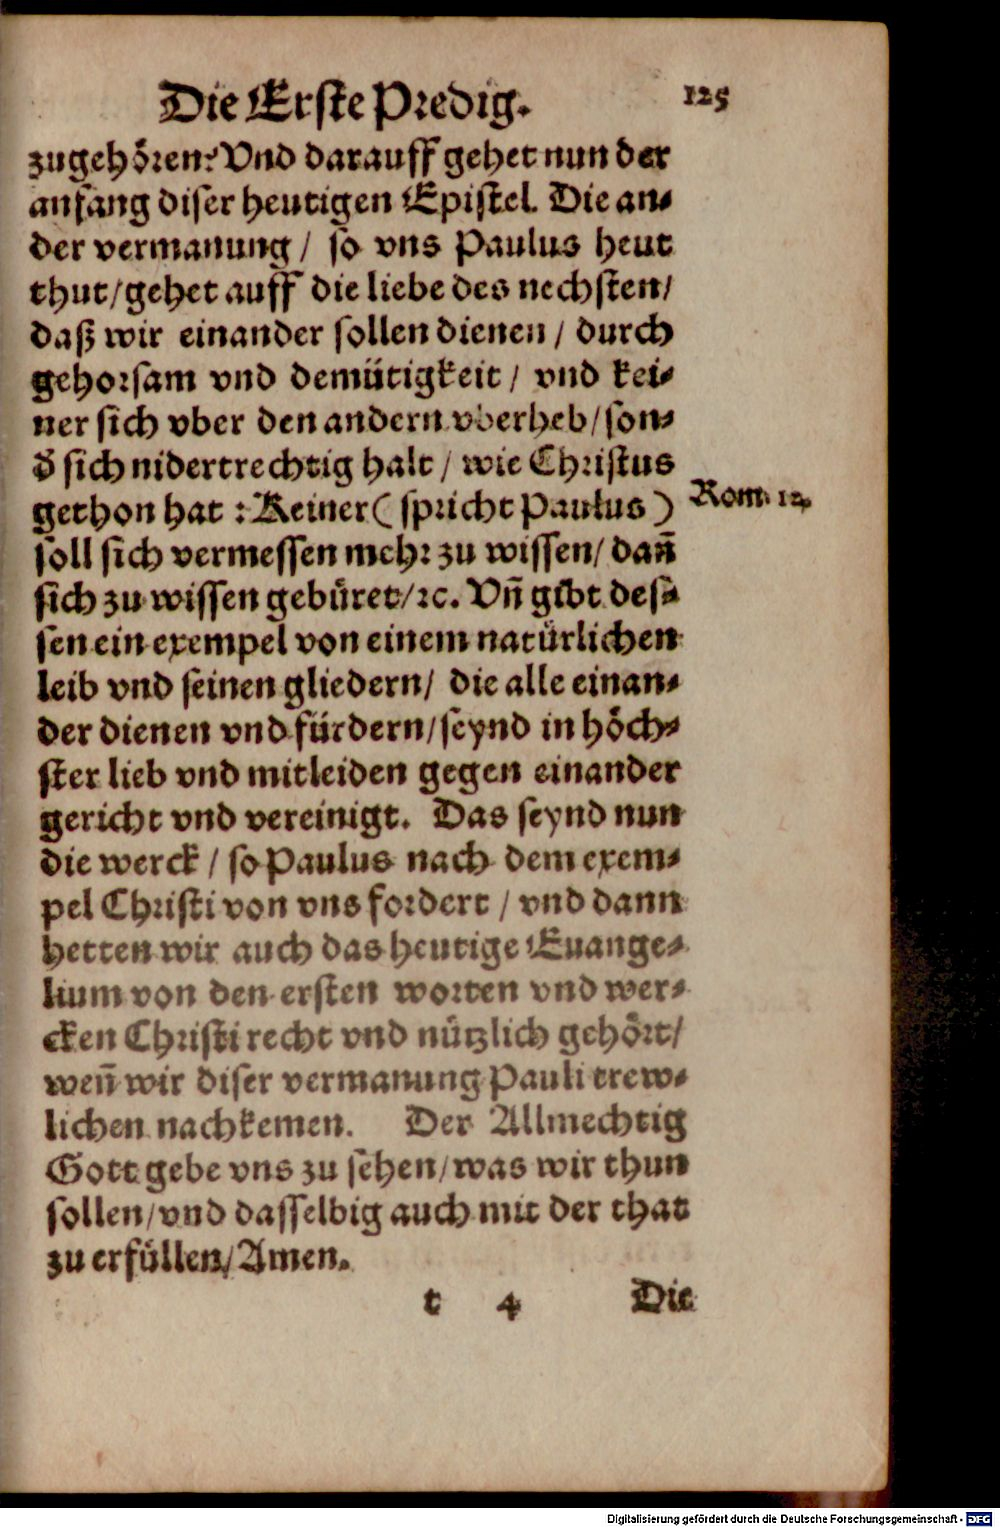 Die Erste Predig. 125
zugehören? Vnd darauff gehet nun der
anfang diser heutigen Epistel. Die an-
der vermanung / so vns Paulus heut
thut / gehet auff die liebe des nechsten /
daß wir einander sollen dienen / durch
gehorsam vnd demütigkeit / vnd kei-
ner sich vber den andern vberheb / son-
ď sich nidertrechtig halt / wie Christus
gethon hat : Keiner ( spricht Paulus ) Rom. 12.
soll sich vermessen mehr zu wissen / dañ
sich zu wissen gebüret / ꝛc. Vñ gibt des-
sen ein exempel von einem natürlichen
leib vnd seinen gliedern / die alle einan-
der dienen vnd fürdern / seynd in höch-
ster lieb vnd mitleiden gegen einander
gericht vnd vereinigt. Das seynd nun
die werck / so Paulus nach dem exem-
pel Christi von vns fordert / vnd dann
hetten wir auch das heutige Euange-
lium von den ersten worten vnd wer-
cken Christi recht vnd nützlich gehört /
weñ wir diser vermanung Pauli trew-
lichen nachkemen. Der Allmechtig
Gott gebe vns zu sehen / was wir thun
sollen / vnd dasselbig auch mit der that
zu erfüllen / Amen.
t 4 Die
Digitalisierung gefördert durch die Deutsche Forschungsgemeinschaft - DFG